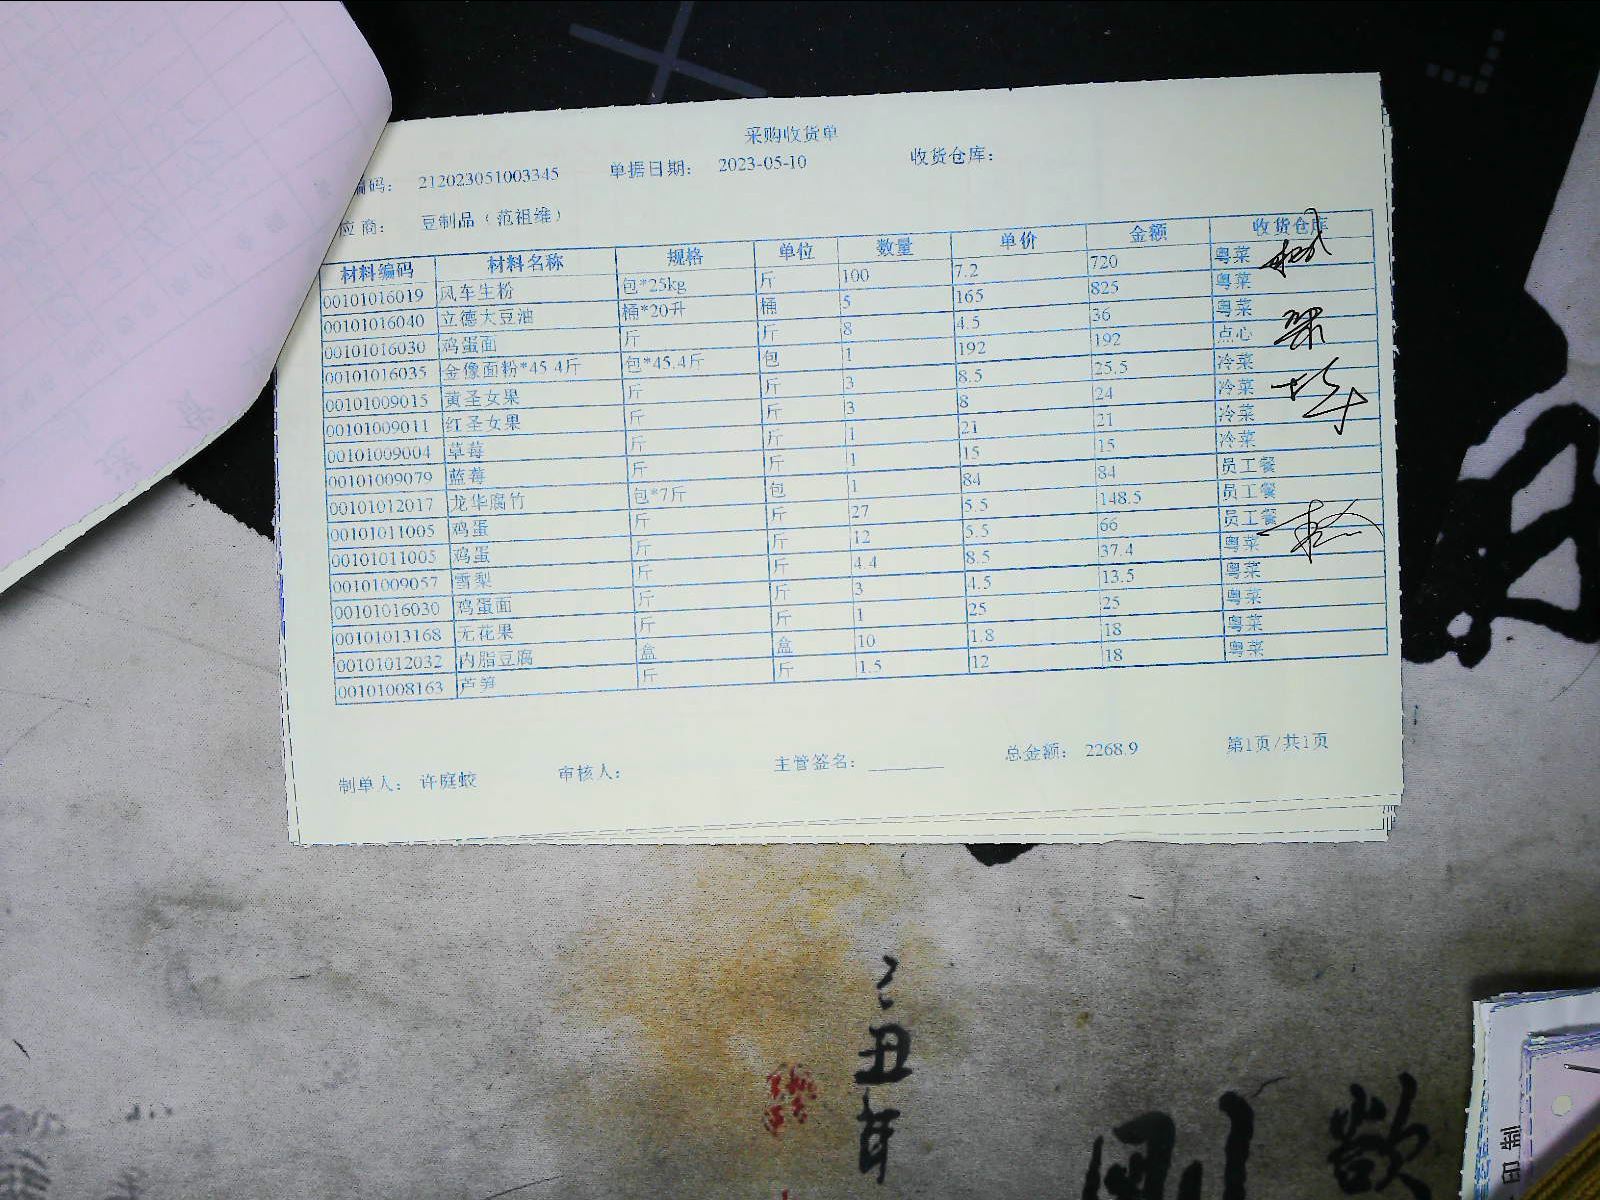 采购收货单
编码： 212023051003345 单据日期： 2023-05-10 收货仓库：
应商： 豆制品（范祖维）
材料编码 材料名称 规格 单位 数量 单价 金额 收货仓库
00101016019 风车生粉 包*25kg 斤 100 7.2 720 粤菜
00101016040 立德大豆油 桶*20升 桶 5 165 825 粤菜
00101016030 鸡蛋面 斤 斤 8 4.5 36 粤菜
00101016035 金像面粉*45.4斤 包*45.4斤 包 1 192 192 点心
00101009015 黄圣女果 斤 斤 3 8.5 25.5 冷菜
00101009011 红圣女果 斤 斤 3 8 24 冷菜
00101009004 草莓 斤 斤 1 21 21 冷菜
00101009079 蓝莓 斤 斤 1 15 15 冷菜
00101012017 龙华腐竹 包*7斤 包 1 84 84 员工餐
00101011005 鸡蛋 斤 斤 27 5.5 148.5 员工餐
00101011005 鸡蛋 斤 斤 12 5.5 66 员工餐
00101009057 雪梨 斤 斤 4.4 8.5 37.4 粤菜
00101016030 鸡蛋面 斤 斤 3 4.5 13.5 粤菜
00101013168 无花果 斤 斤 1 25 25 粤菜
00101012032 内脂豆腐 盒 盒 10 1.8 18 粤菜
00101008163 芦笋 斤 斤 1.5 12 18 粤菜
制单人： 许庭蛟 审核人： 主管签名： 总金额： 2268.9 第1页/共1页
丑年
剛
印制